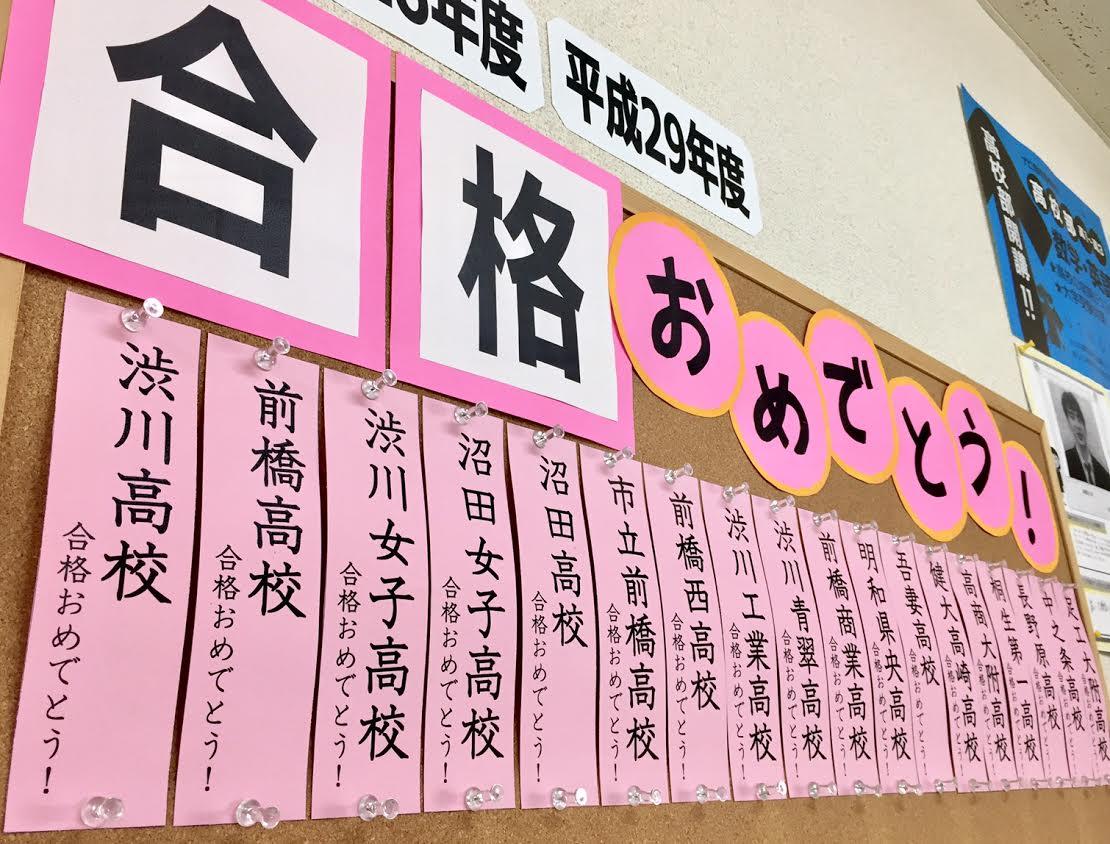 年度
平成29年度
合格
おめでとう!
渋川高校
合格おめでとう!
前橋高校
合格おめでとう!
渋川女子高校
合格おめでとう!
沼田女子高校
合格おめでとう!
沼田高校
合格おめでとう!
市立前橋高校
合格おめでとう!
前橋西高校
合格おめでとう!
渋川工業高校
合格おめでとう!
渋川青翠高校
合格おめでとう!
前橋商業高校
合格おめでとう!
明和県央高校
合格おめでとう!
吾妻高校
合格おめでとう!
健大高崎高校
合格おめでとう!
高商大附高校
合格おめでとう!
桐生第一高校
合格おめでとう!
長野原高校
合格おめでとう!
中之条高校
合格おめでとう!
足工大附高校
高校部開講!!
高校部
数学・英